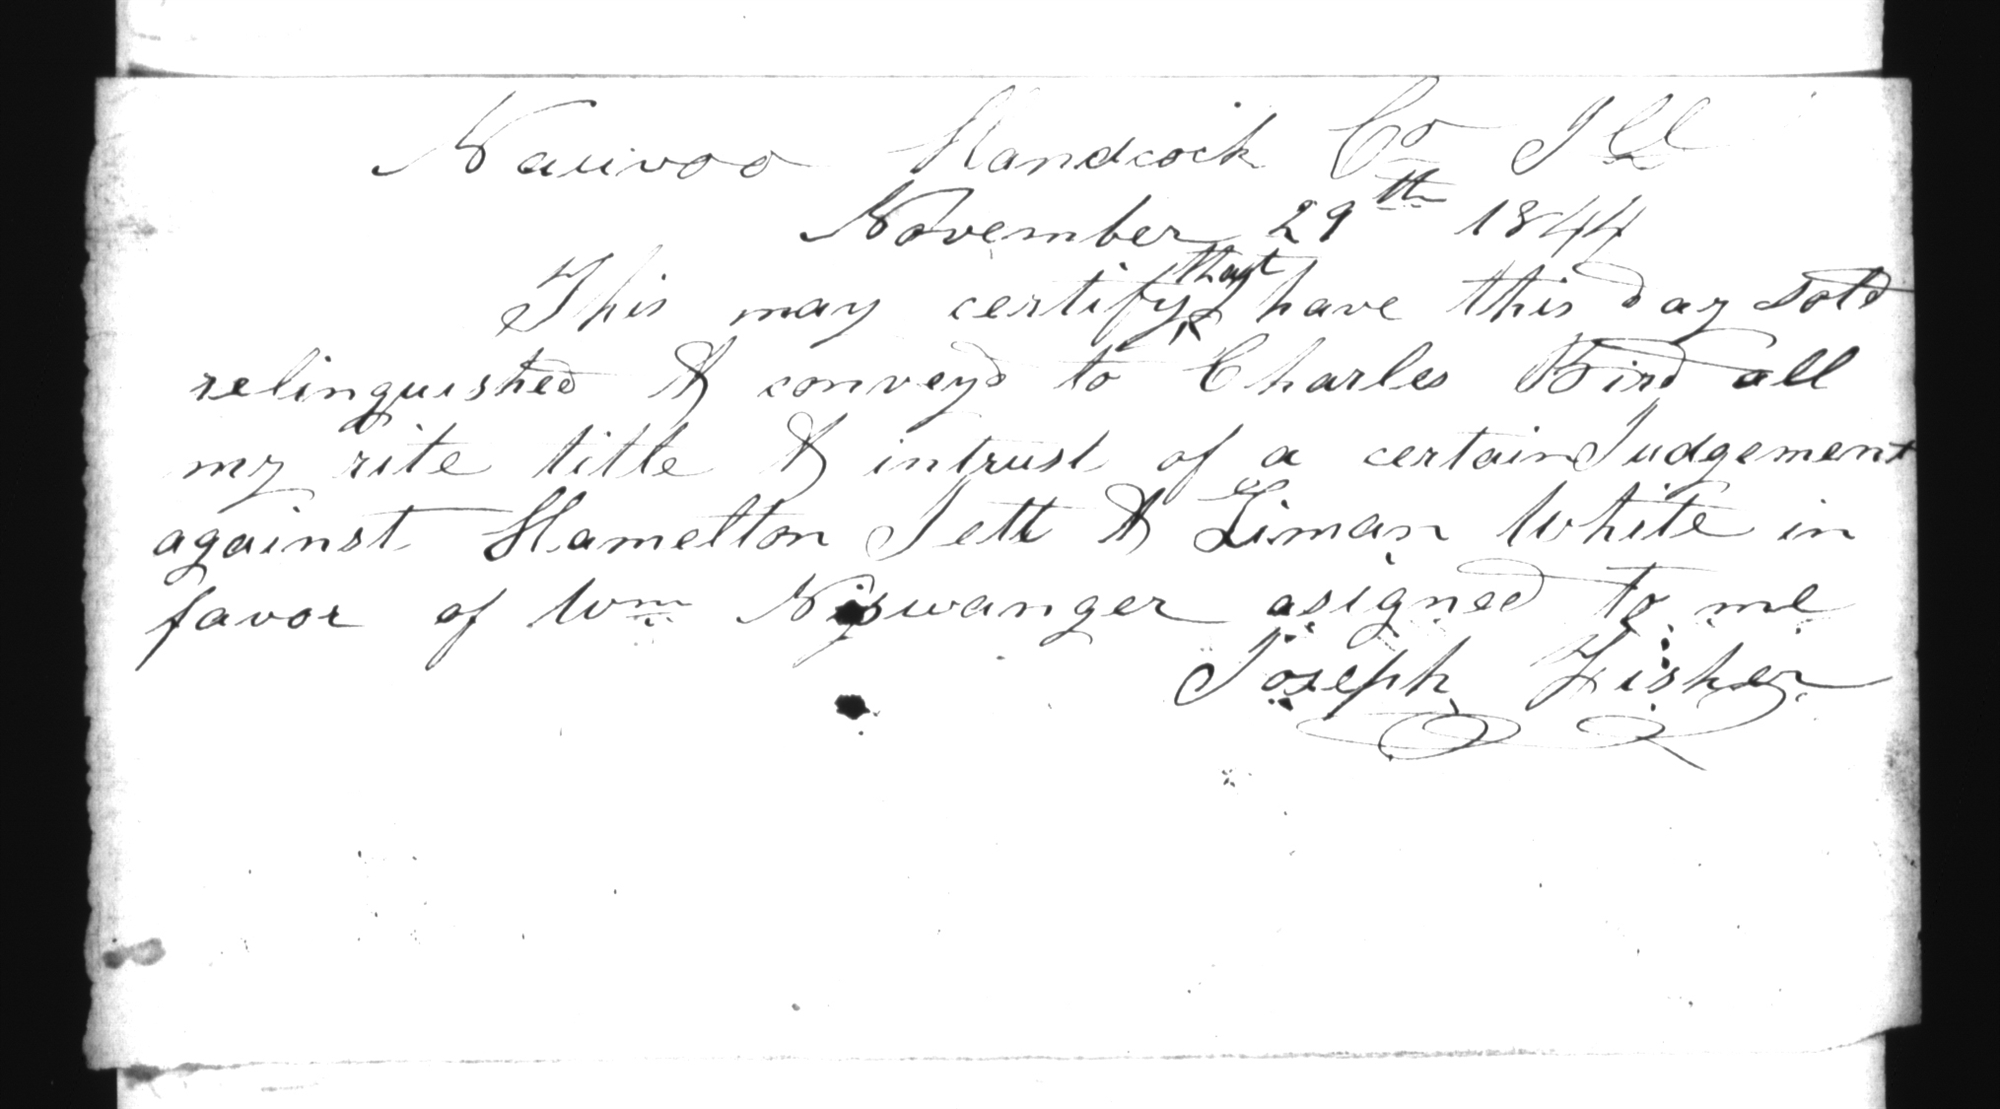 Nauvoo Handcock Co Ill
November 29th 1844
This may certify that I have this day sold
relinquished & conveyd to Charles Bird all
my rite title & intrust of a certain Judgement
against Hamelton Jett & Liman White in
favor of Wm Niswanger asigned to me
Joseph Fisher